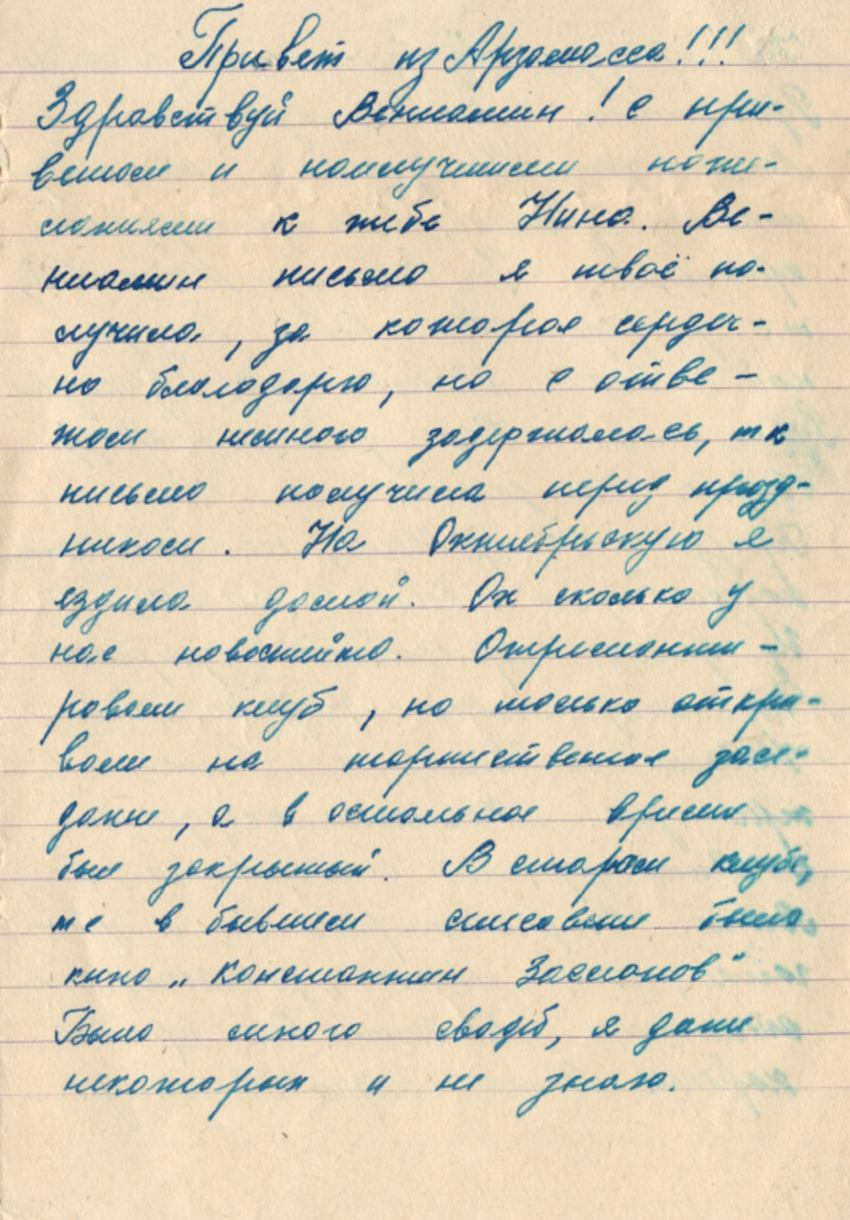 Привет из Арзамасса!!!
Здравствуй Вениамин! с при-
ветом и наилучшими поже-
ланиями к тебе Нина. Ве-
ниамин письмо я твоё по-
лучила, за которое сердеч-
но благодарю, но с отве-
том немного задержалась, тк
письмо получила перед празд-
ником. На Октябрьскую я
ездила домой. Ох сколько у
нас новостей то. Отремонти-
ровали клуб, но только откры-
вали на торжественное засе-
дание, а в остальное время
был закрытый. В старом клубе,
те в бывшем было
кино „Константин Заслонов"
Было много свадеб, я даже
некоторых и не знаю.